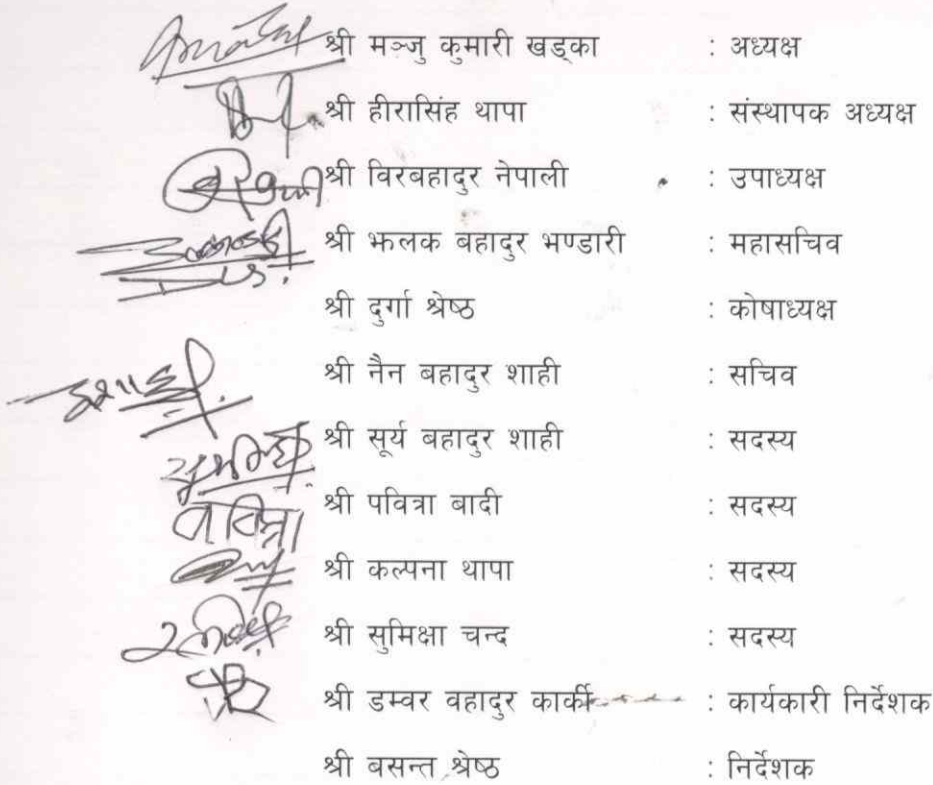 श्री मञ्जु कुमारी खड्का : अध्यक्ष
श्री हीरासिंह थापा : संस्थापक अध्यक्ष
श्री विरबहादुर नेपाली : उपाध्यक्ष
श्री झलक बहादुर भण्डारी : महासचिव
श्री दुर्गा श्रेष्ठ : कोषाध्यक्ष
श्री नैन बहादुर शाही : सचिव
श्री सूर्य बहादुर शाही : सदस्य
पवित्रा श्री पवित्रा बादी : सदस्य
श्री कल्पना थापा : सदस्य
श्री सुमिक्षा चन्द : सदस्य
श्री डम्वर वहादुर कार्की : कार्यकारी निर्देशक
श्री बसन्त श्रेष्ठ : निर्देशक